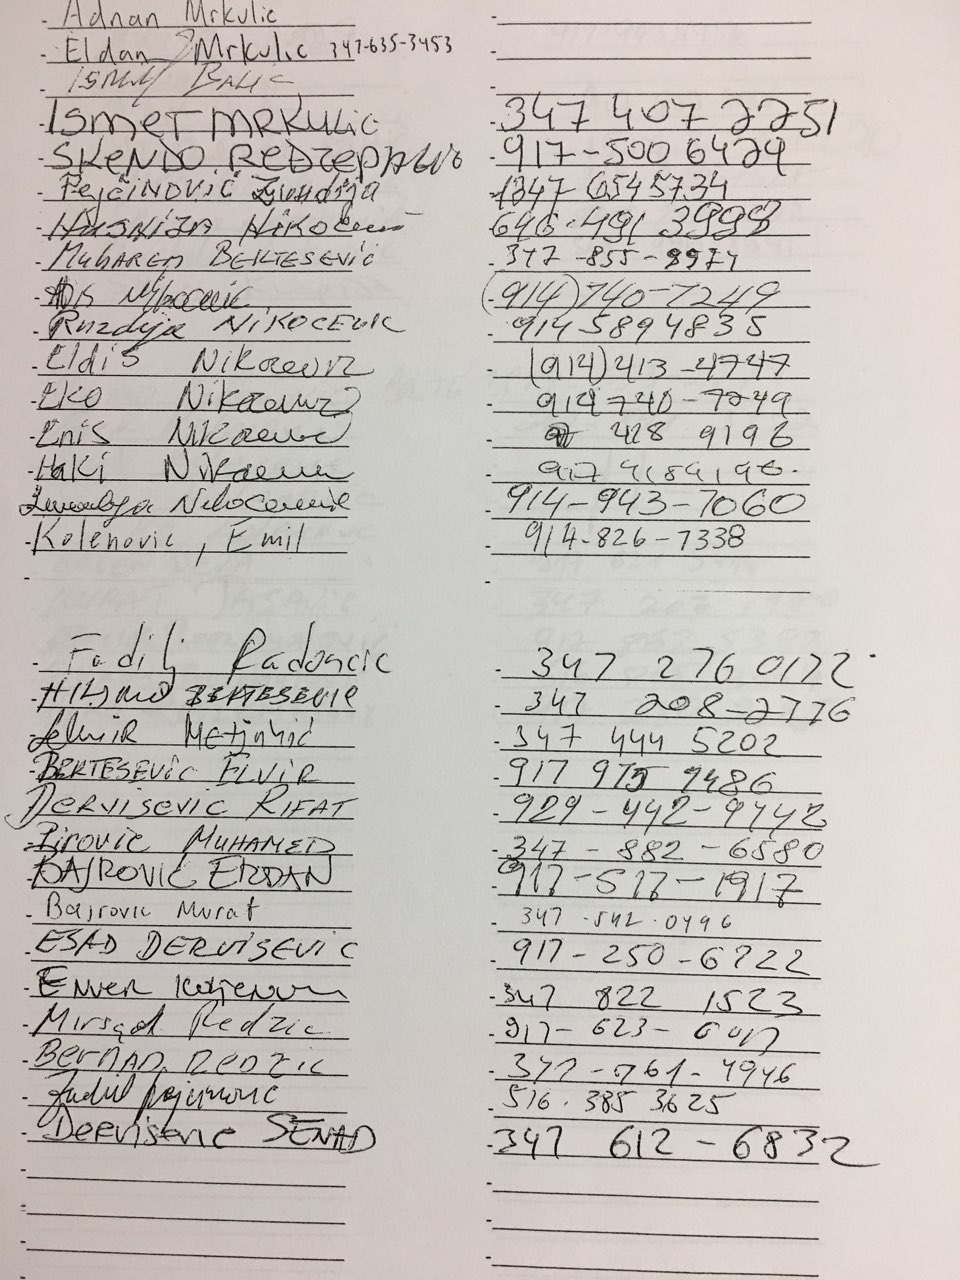 Adnan Mrkulic
Eldan Mrkulic 347-635-3453
Ismet Balic
Ismet Mrkulic 347 407 2251
SKENDO REDZEPAGIC 917-500 6429
PejčiNOVić Zumdija 1347 6545734
HUSNIJA NIKOCEVIC 646-491 3998
Muharem BEKTESEVIC 347-855-8974
(914) 740-7249
Ruzdija NIKOCEVIC 914 589 4835
Eldis Nikocevic (914) 413-4747
EKO Nikocevic 914 740-7249
Enis Nikocevic 428 9196
Haki Nikocevic 917 4189196.
Nikocevic 914-943-7060
Kolenovic, Emil 914-826-7338
Fadilj Radoncic 347 276 0172
HILJMO BEKTESEVIC 347 208-2776
Metjahić 347 444 5202
BEKTESEVIC ELVIR 917 975 9486
DERVISEVIC RIFAT 929-442-9742
Pirovic MUHAMED 347-882-6580
BAJROVIC ERDAN 917-517-1917
Bajrovic Murat 347-542-0496
ESAD DERVISEVIC 917-250-6722
ENVER 347 822 1523
Mirsad Redzic 917-623-6017
BERNAD REDZIC 347-761-4946
516.385 3625
Dervisevic SENAD 347 612-6832